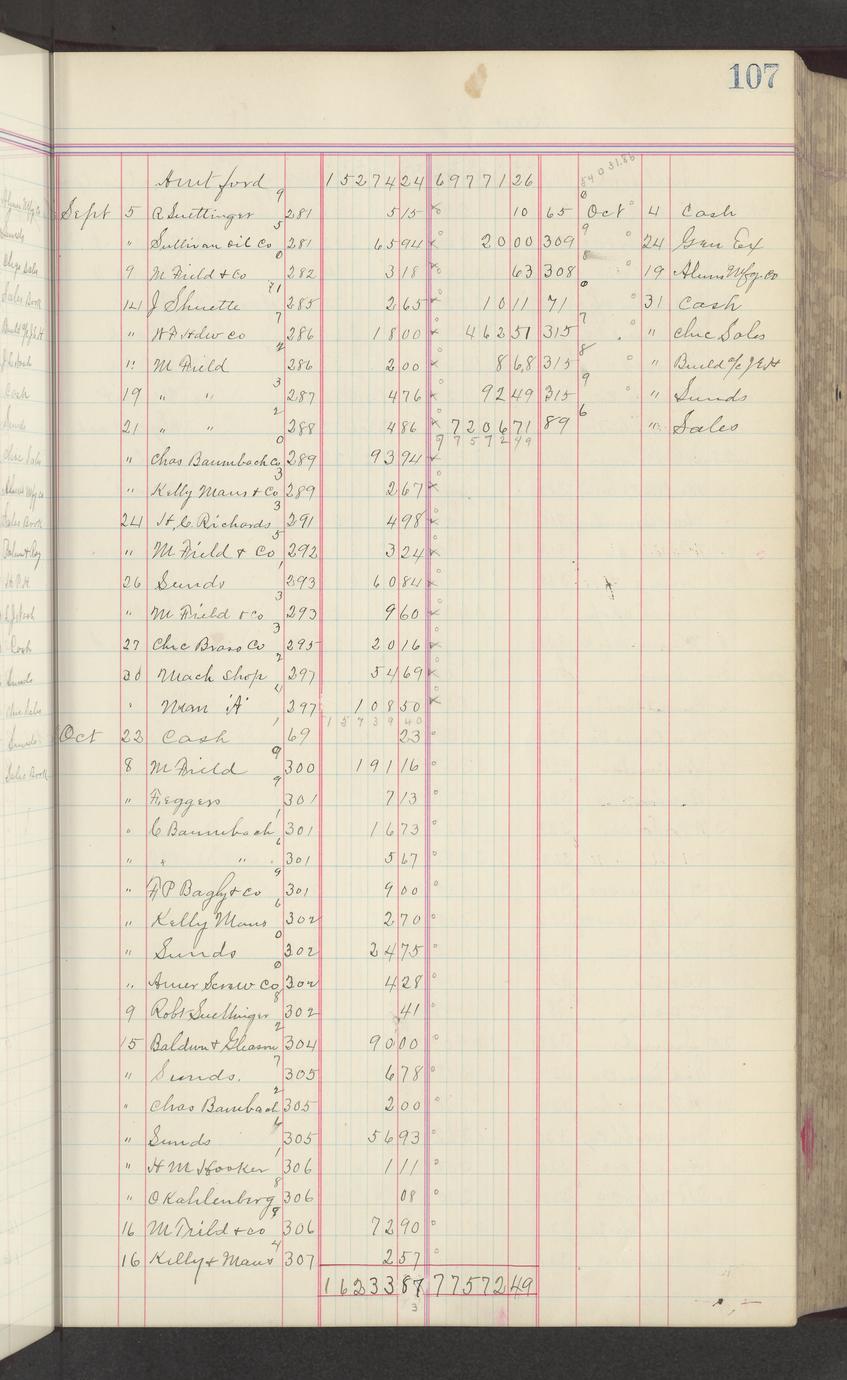 107
Amt ford 15274 24 69771 26
Sept 5 R Suettinger 281 5 15 10 65 Oct 4 Cash
" Sullivan Oil Co 281 65 94 20 00 309 24 Gen Ex
9 M Field & Co 282 3 18 63 308 19 Alum Mfg. Co
14 J Shuette 285 2 65 10 11 71 31 Cash
" H F Hdw Co 286 18 00 462 51 315 " Chic Sales
" M Field 286 2 00 8 68 315 " Build a/c J E H
19 " " 287 4 76 92 49 315 " Sunds
21 " " 288 4 86 7206 71 89 " Sales
77572 49
" Chas Baumbach Co 289 93 94
" Kelly Maus & Co 289 2 67
24 H. C. Richards 291 4 98
" M Field & Co 292 3 24
26 Sunds 293 60 84
" M Field & Co 293 9 60
27 Chic Brass Co 295 20 16
30 Mach Shop 297 54 69
" Mem "A" 297 108 50
15739 40
Oct 22 Cash 69 23
8 M Field 300 191 16
" F. Eggers 301 7 13
" C Baumbach 301 16 73
" " " 301 5 67
" F P Bagly & Co 301 9 00
" Kelly Maus 302 2 70
" Sunds 302 24 75
" Amer Screw Co 302 4 28
9 Robt Suettinger 302 41
15 Baldwin & Gleason 304 90 00
" Sunds. 305 6 78
" Chas Bambach 305 2 00
" Sunds 305 56 93
" H M Hooker 306 1 11
" O Kahlenberg 306 08
16 M Field & Co 306 72 90
16 Kelly & Maus 307 2 57
16233 87 77572 49
3